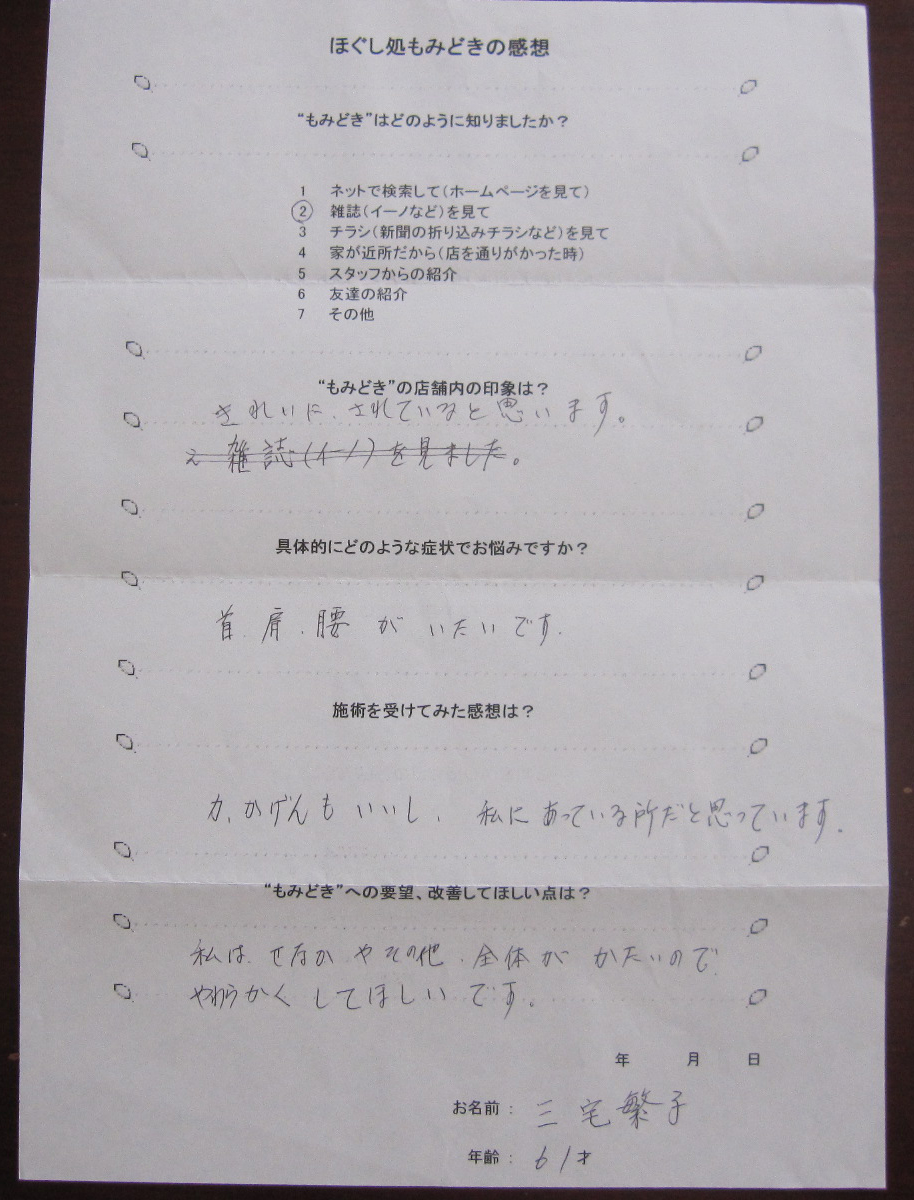 ほぐし処もみどきの感想
“もみどき”はどのように知りましたか？
1 ネットで検索して(ホームページを見て)
2 雑誌(イーノなど)を見て
3 チラシ(新聞の折り込みチラシなど)を見て
4 家が近所だから(店を通りがかった時)
5 スタッフからの紹介
6 友達の紹介
7 その他
“もみどき”の店舗内の印象は？
きれいに、されていると思います。
2 雑誌(イーノ)を見ました。
具体的にどのような症状でお悩みですか？
首、肩、腰がいたいです.
施術を受けてみた感想は？
力、かげんもいいし、私にあっている所だと思っています.
“もみどき”への要望、改善してほしい点は？
私は、せなかやその他、全体がかたいので、
やわらかくしてほしいです。
年 月 日
お名前： 三宅繁子
年齢： 61才